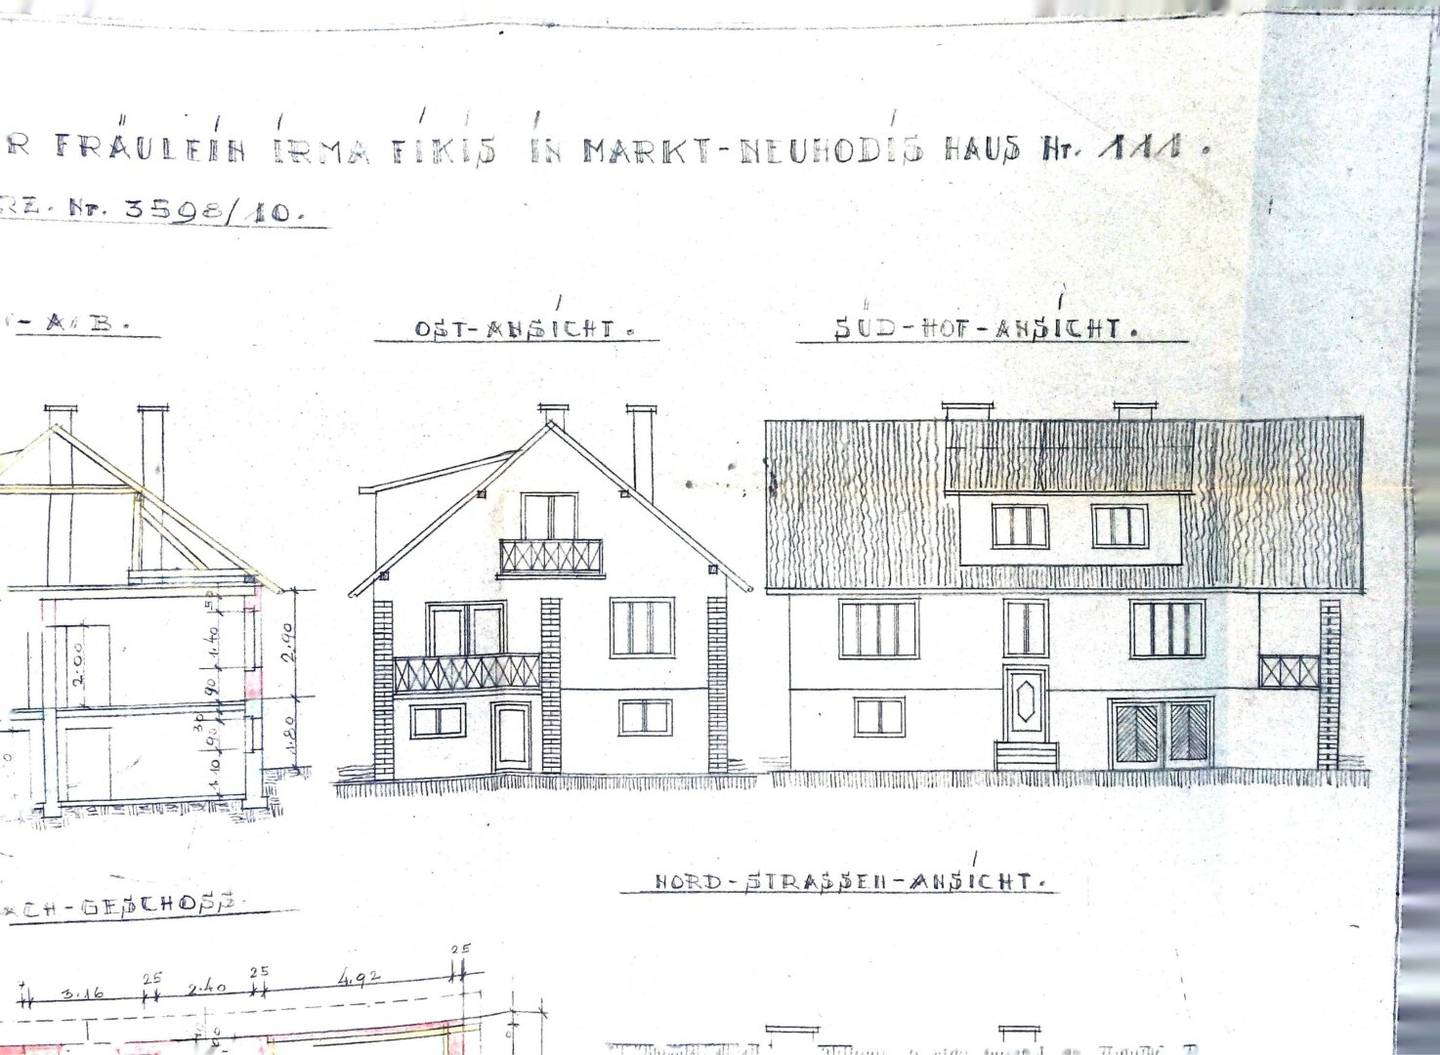 R FRÄULEIN IRMA FIKIS IN MARKT-NEUHODIS HAUS Nr. 111.
RZ. Nr. 3598/10.
- A B.
OST-ANSICHT.
SÜD-HOF-ANSICHT.
50
1.40
90
30
90
1.10
2.90
1.80
2.00
0
NORD-STRASSEN-ANSICHT.
ACH-GESCHOSS.
3.16
25
2.40
25
4.92
25